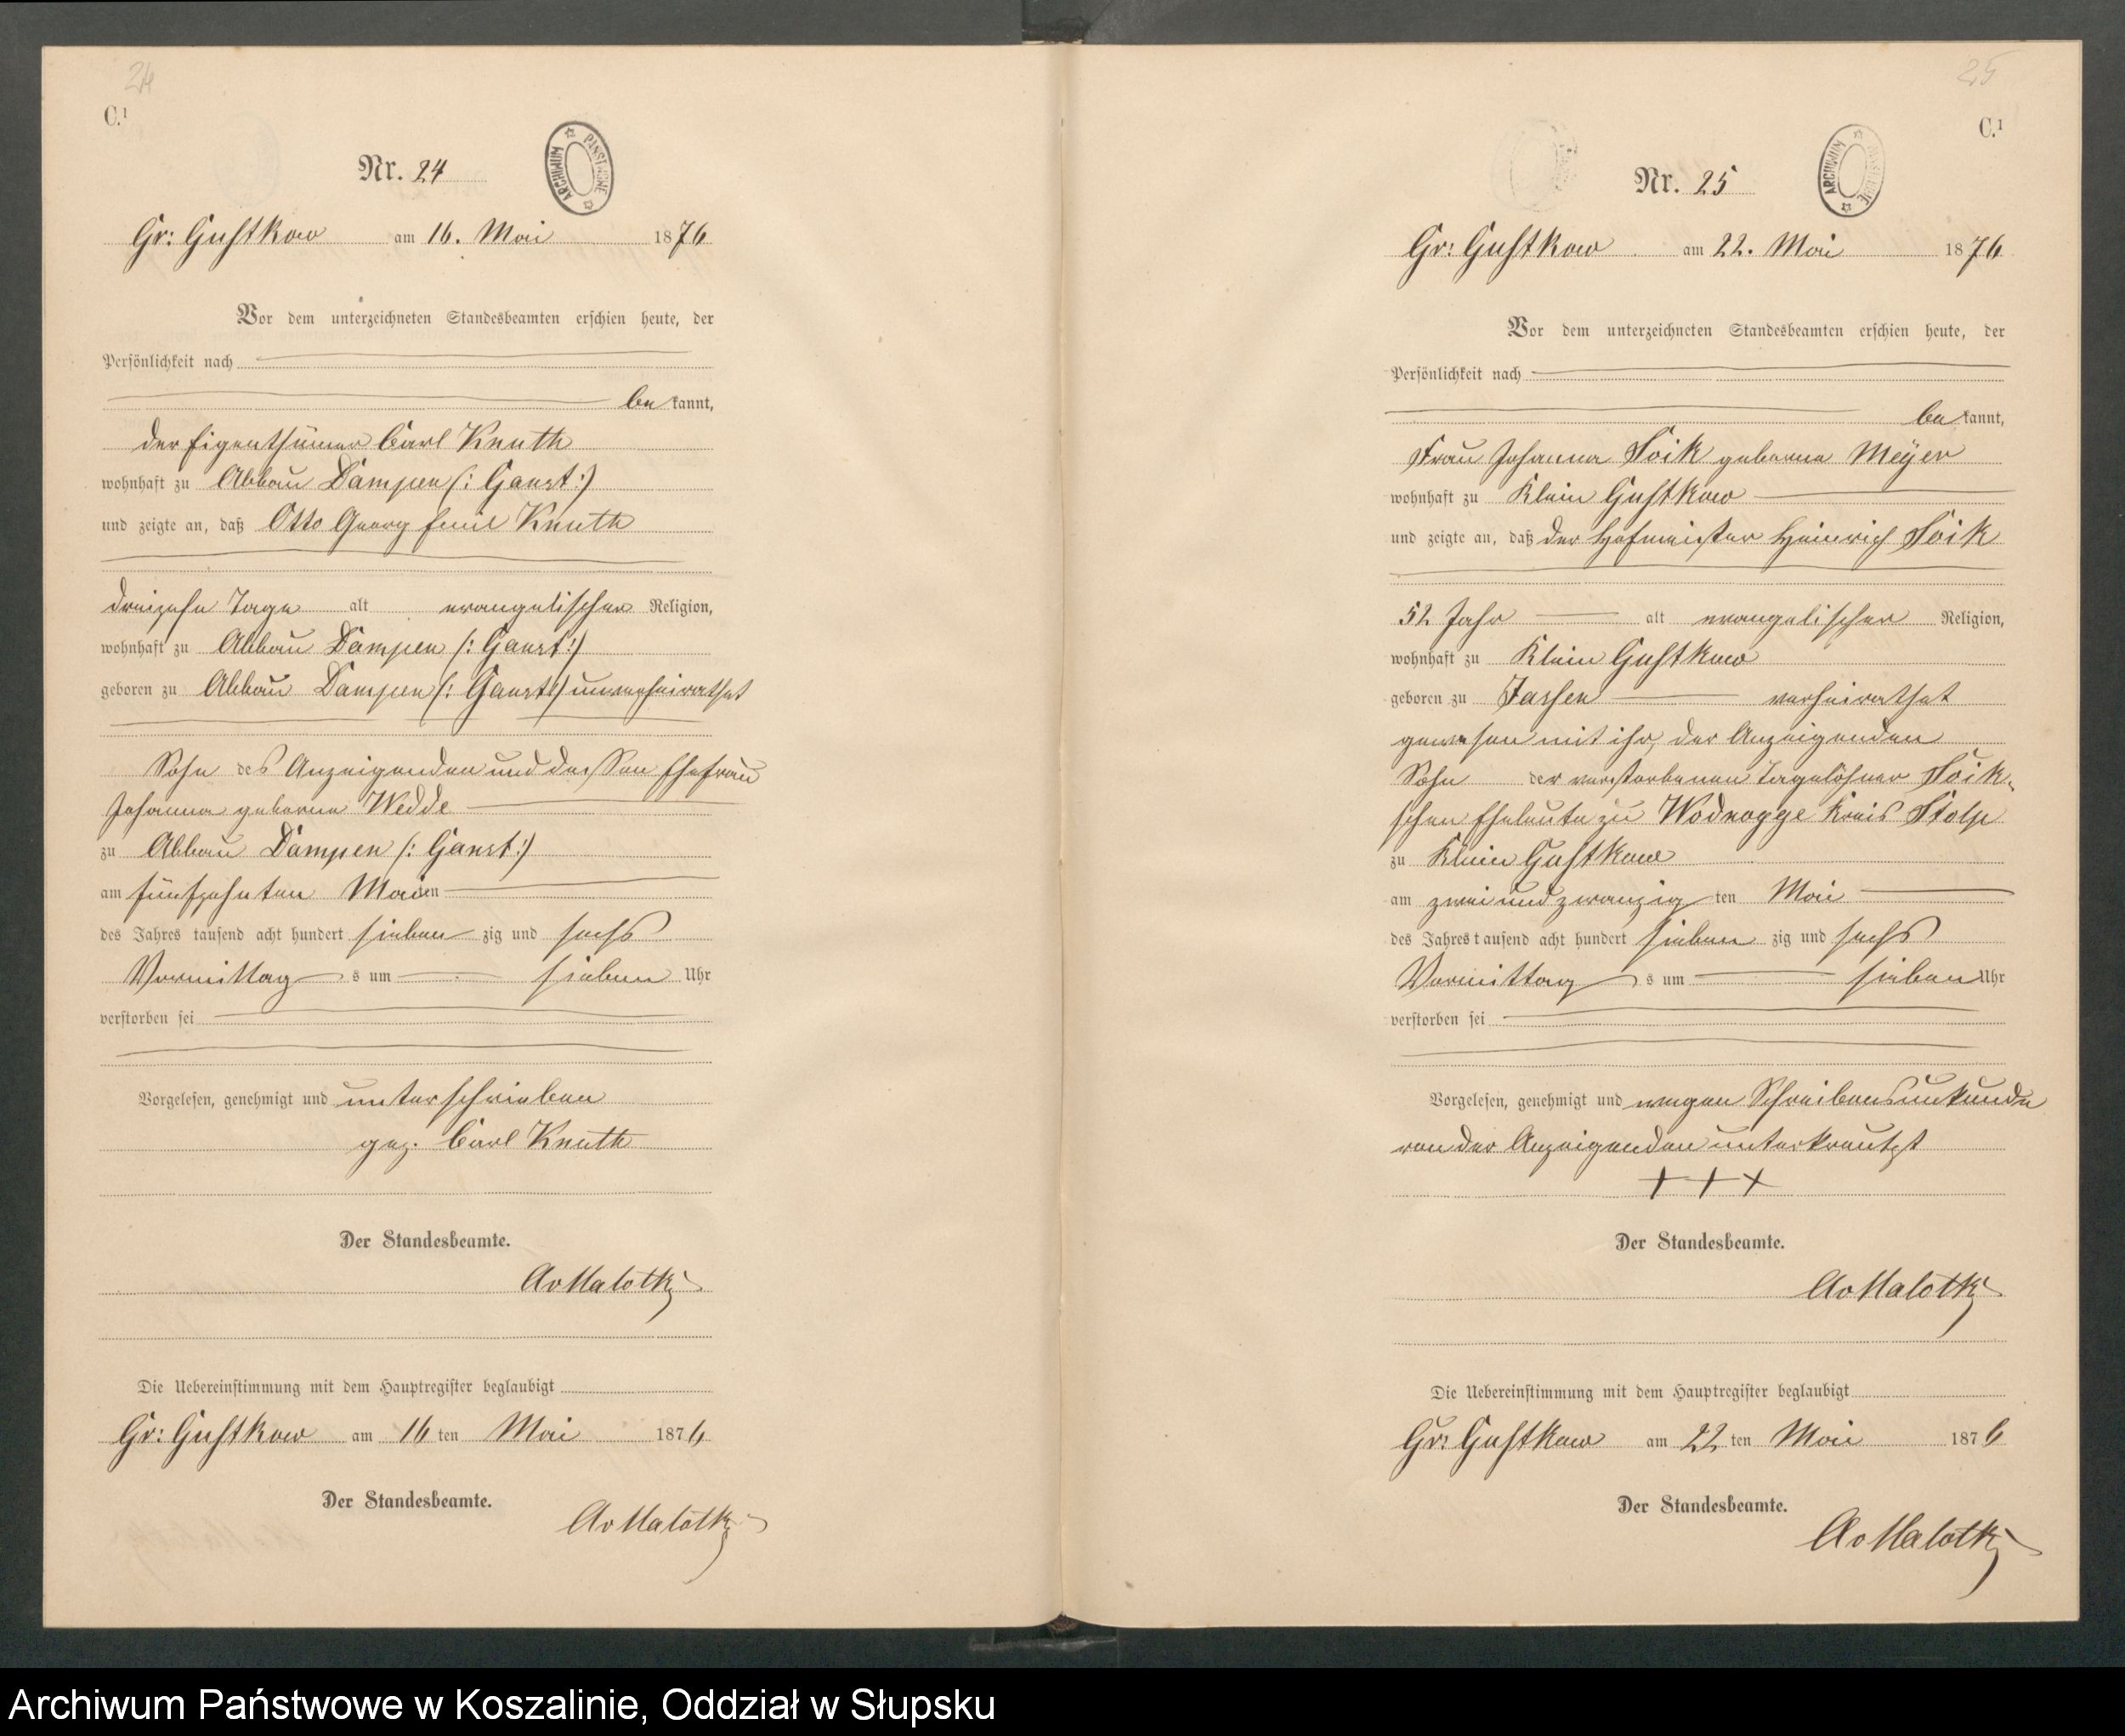 24
C.¹
Nr. 24
ARCHIWUM PAŃSTWOWE
Gr: Gustkow am 16. Mai 1876
Vor dem unterzeichneten Standesbeamten erschien heute, der
Persönlichkeit nach
be kannt,
der Eigenthümer Carl Knuth
wohnhaft zu Abbau Dampen (: Ganst :)
und zeigte an, daß Otto Georg Emil Knuth
dreizehn Tage alt evangelischer Religion,
wohnhaft zu Abbau Dampen (: Ganst :)
geboren zu Abbau Dampen (: Ganst :) unverheirathet
Sohn des Anzeigenden und dessen Ehefrau
Johanna geborne Wedde
zu Abbau Dampen (: Ganst :)
am fünfzehnten Mai ten
des Jahres tausend acht hundert sieben zig und sechs
Vormittag s um sieben Uhr
verstorben sei
Vorgelesen, genehmigt und unterschrieben
gez. Carl Knuth
Der Standesbeamte.
AvMalotki
Die Uebereinstimmung mit dem Hauptregister beglaubigt
Gr: Gustkow am 16 ten Mai 1876
Der Standesbeamte.
AvMalotki
25
C.¹
Nr. 25
ARCHIWUM PAŃSTWOWE
Gr: Gustkow am 22. Mai 1876
Vor dem unterzeichneten Standesbeamten erschien heute, der
Persönlichkeit nach
be kannt,
Frau Johanna Toik geborne Meÿer
wohnhaft zu Klein Gustkow
und zeigte an, daß der Hofmeister Heinrich Toik
52 Jahr alt evangelischer Religion,
wohnhaft zu Klein Gustkow
geboren zu Jassen verheirathet
gewesen mit ihr, der Anzeigenden
Sohn der verstorbenen Tagelöhner Toik-
schen Eheleute zu Wodnogge Kreis Stolp
zu Klein Gustkow
am zwei und zwanzig ten Mai
des Jahres tausend acht hundert sieben zig und sechs
Vormittag s um sieben Uhr
verstorben sei
Vorgelesen, genehmigt und wegen Schreibensunkunde
von der Anzeigenden unterkreutzt
+++
Der Standesbeamte.
AvMalotki
Die Uebereinstimmung mit dem Hauptregister beglaubigt
Gr: Gustkow am 22 ten Mai 1876
Der Standesbeamte.
AvMalotki
Archiwum Państwowe w Koszalinie, Oddział w Słupsku